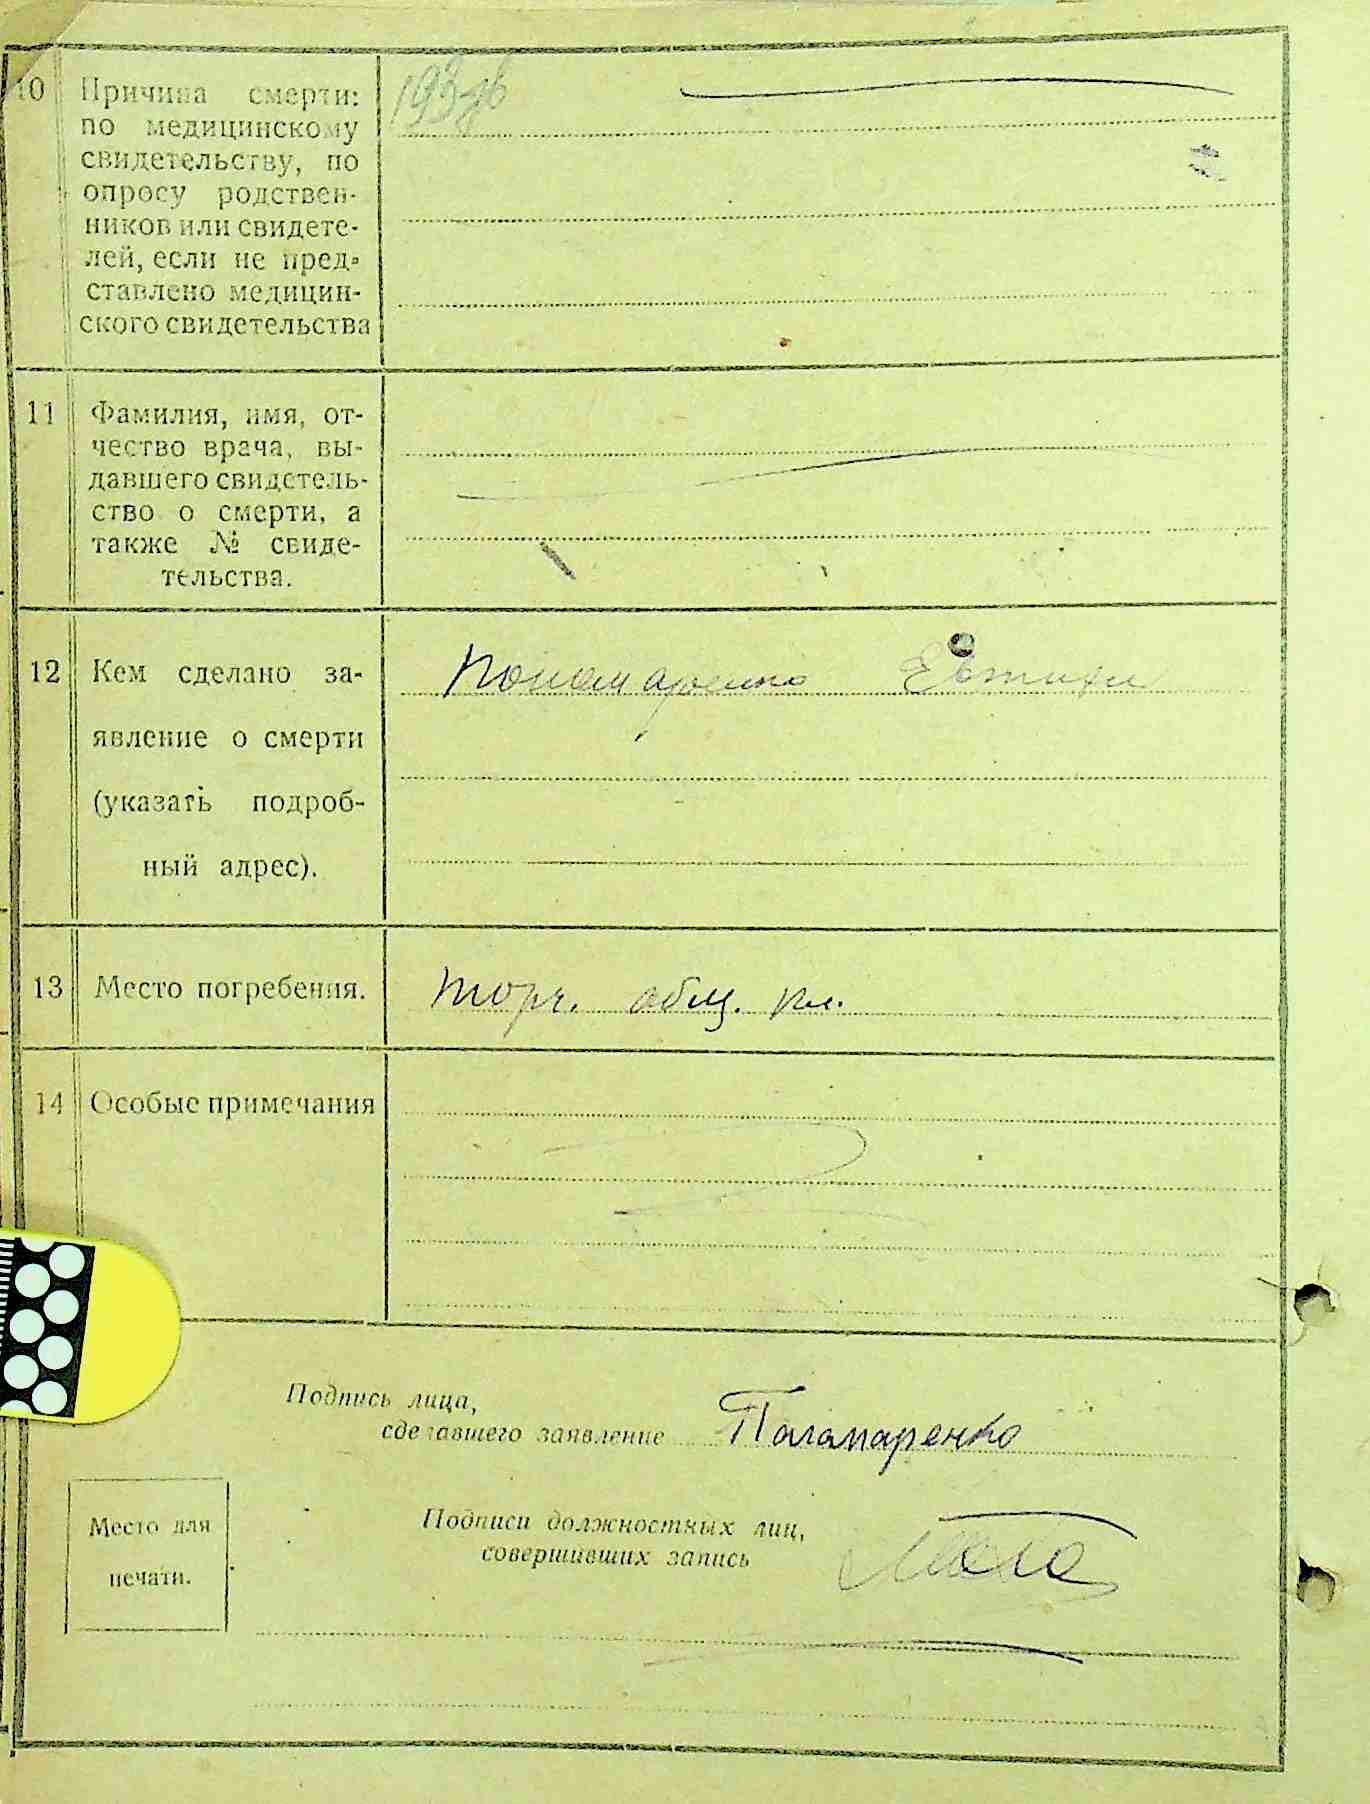 10 Причина смерти:
по медицинскому
свидетельству, по
опросу родствен-
ников или свидете-
лей, если не пред-
ставлено медицин-
ского свидетельства
11 Фамилия, имя, от-
чество врача, вы-
давшего свидетель-
ство о смерти, а
также № свиде-
тельства.
12 Кем сделано за-
явление о смерти
(указать подроб-
ный адрес).
Пономаренко
13 Место погребения.
общ.
14 Особые примечания
Подпись лица,
сделавшего заявление Паламаренко
Место для
печати.
Подписи должностных лиц,
совершивших запись